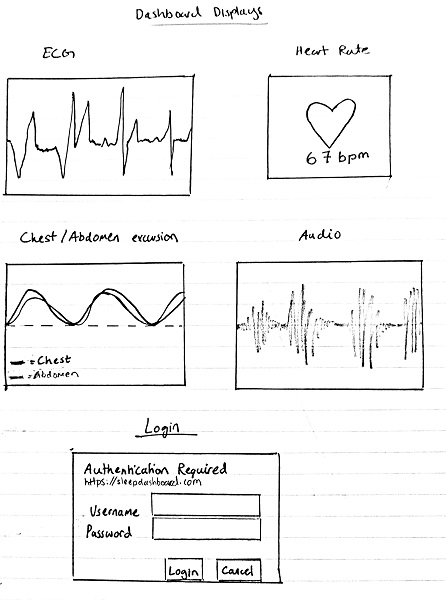 Dashboard Displays
ECG
Heart Rate
67 bpm
Chest/Abdomen excursion
Audio
= Chest
= Abdomen
Login
Authentication Required
https://sleepdashboard.com
Username
Password
Login
Cancel